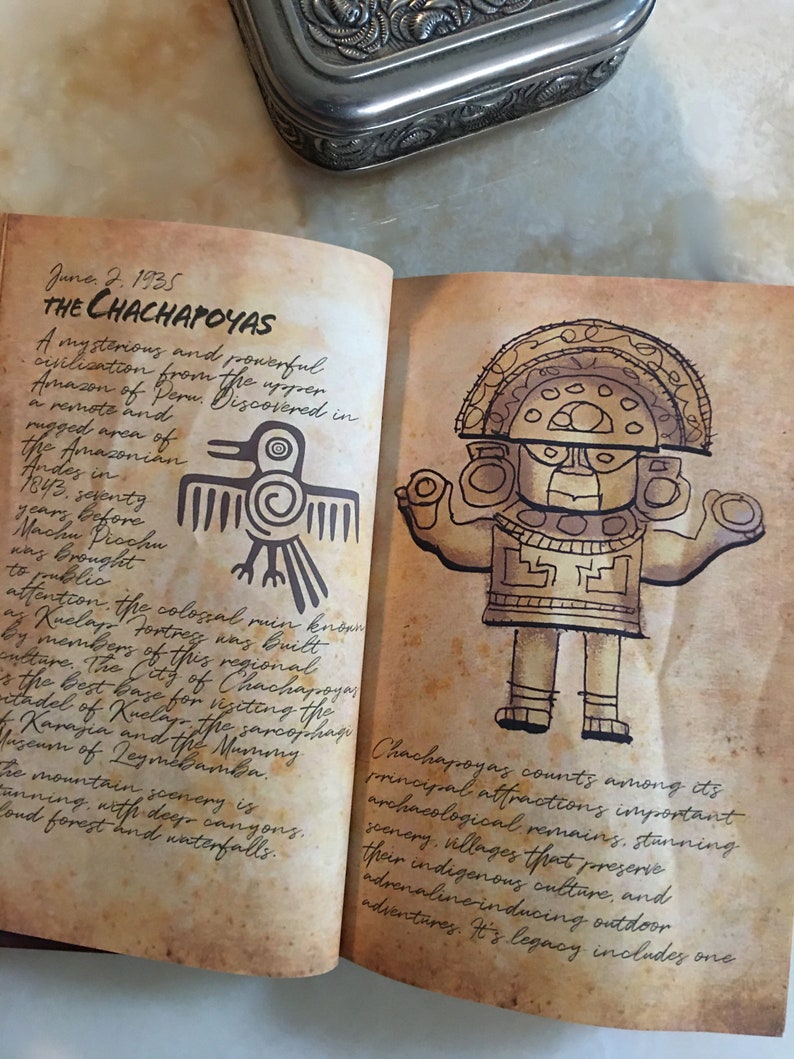 June. 2. 1935
THE CHACHAPOYAS
A mysterious and powerful
civilization from the upper
Amazon of Peru. Discovered in
a remote and
rugged area of
the Amazonian
Andes in
1843, seventy
years before
Machu Picchu
was brought
to public
attention, the colossal ruin known
as Kuelap Fortress was built
by members of this regional
culture. The City of Chachapoyas
is the best base for visiting the
citadel of Kuelap, the sarcophagi
of Karajia and the Mummy
Museum of Leymebamba.
The mountain scenery is
stunning, with deep canyons,
cloud forest and waterfalls.
Chachapoyas counts among its
principal attractions important
archaeological remains, stunning
scenery, villages that preserve
their indigenous culture, and
adrenaline-inducing outdoor
adventures. It's legacy includes one